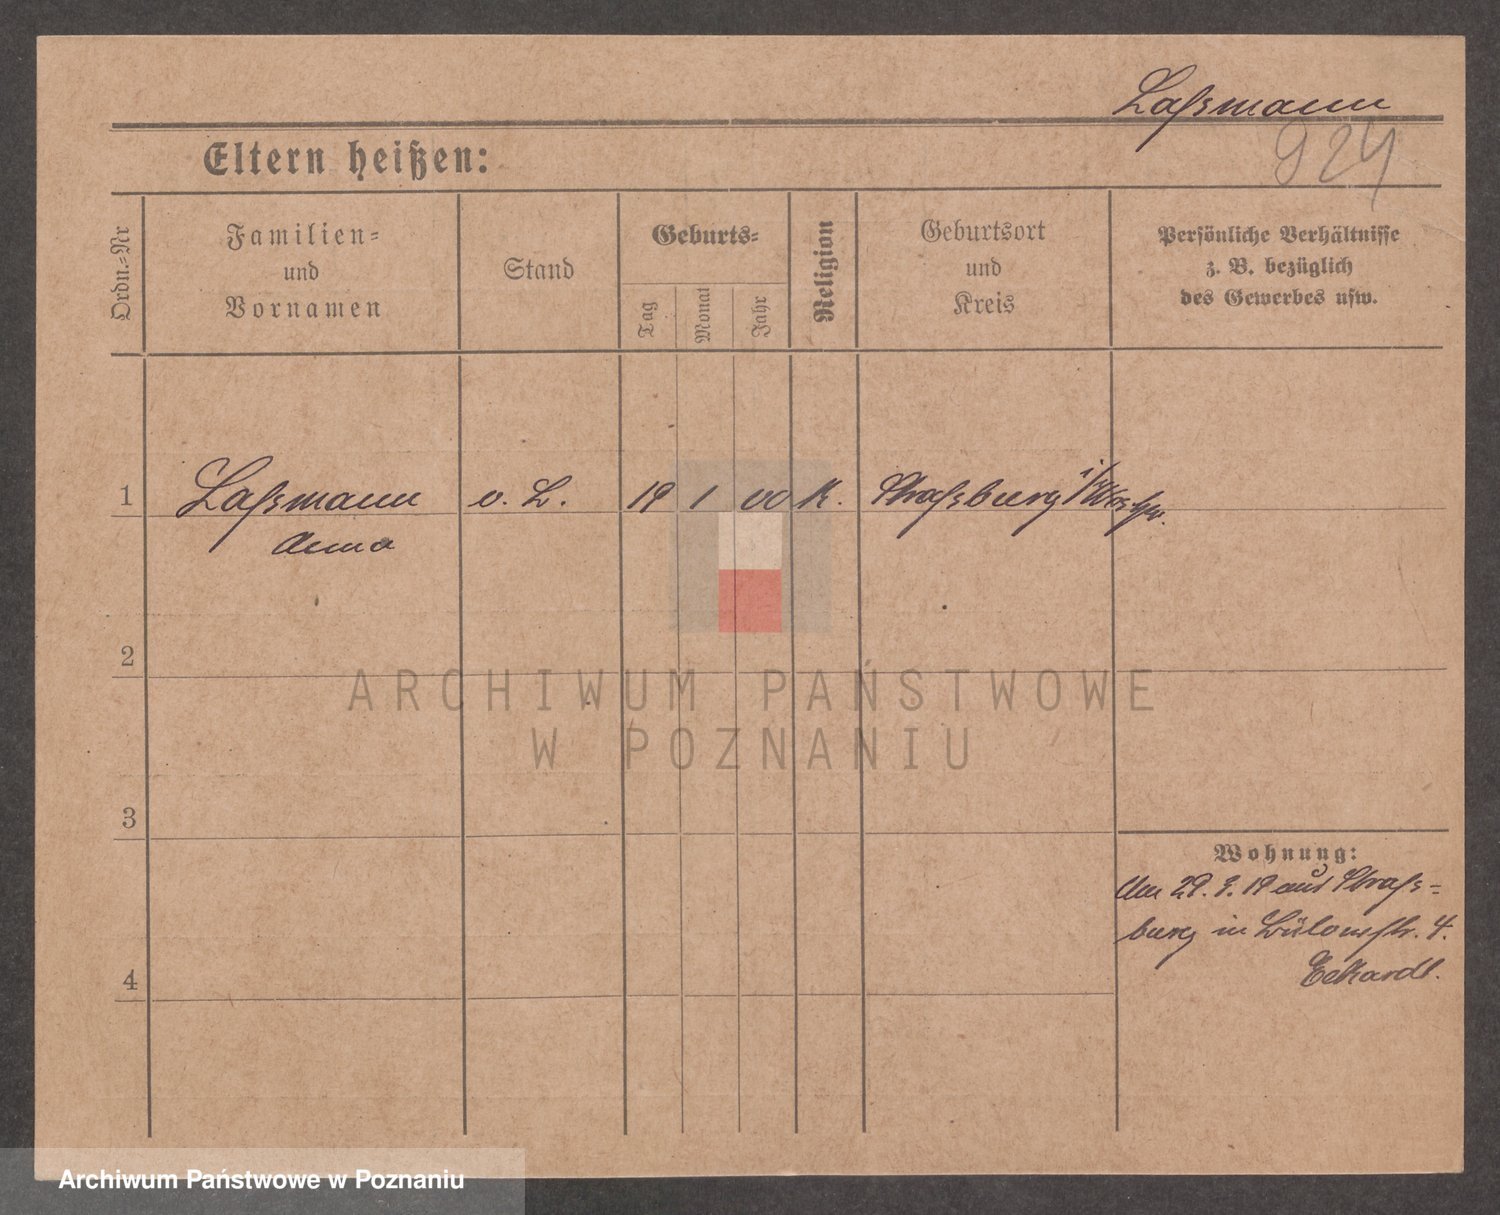 Laßmann
924
Eltern heißen:
Ordn.=Nr
Familien=
und
Vornamen
Stand
Geburts=
Tag
Monat
Jahr
Religion
Geburtsort
und
Kreis
Persönliche Verhältnisse
z. B. bezüglich
des Gewerbes usw.
1
Laßmann
o. L.
19
1
00
K.
Straßburg i/Westpr.
Anna
2
ARCHIWUM PAŃSTWOWE
W POZNANIU
3
Wohnung:
Am 29. 9. 19 aus Straß=
burg in Bülowstr. 4.
Eckardt.
4
Archiwum Państwowe w Poznaniu